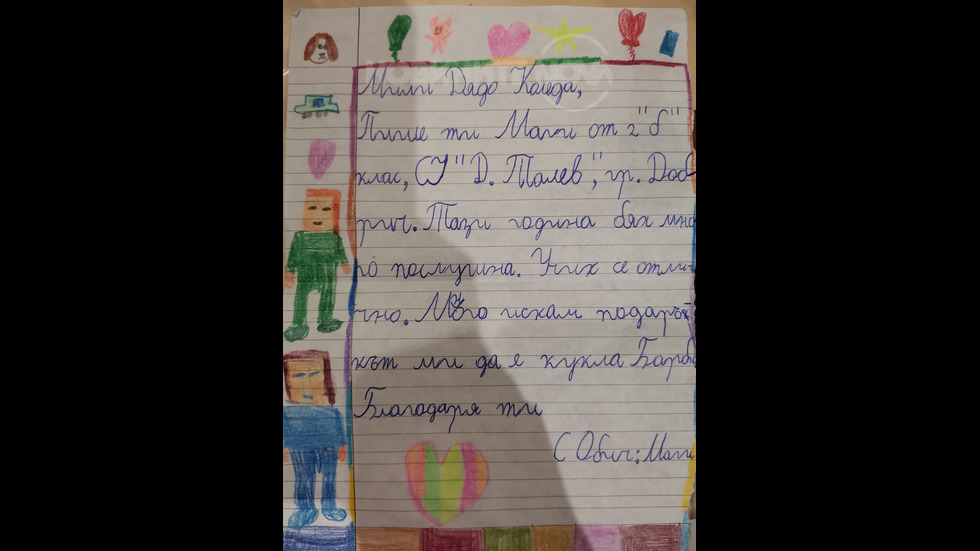 Мили Дядо Коледа,
Пише ти Маги от 2 "б"
клас, СУ "Д. Талев", гр. Доб
рич. Тази година бях мно
го послушна. Учих се отли-
чно. Много искам подаръ
кът ми да я кукла Барби
Благодаря ти
С Обич: Маги